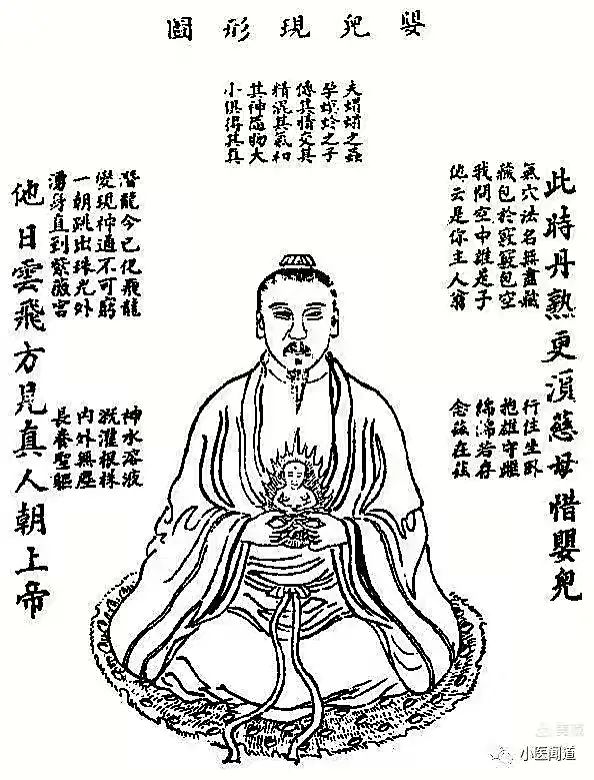 嬰兒現形圖
夫蜎蜎之蟲
孕螟蛉之子
傳其情交其
精混其氣和
其神隨物大
小俱得其真
此時丹熟更須慈母惜嬰兒
氣穴法名無盡藏
藏包於竅竅包空
我問空中誰是子
他云是你主人翁
行住坐臥
抱雄守雌
綿綿若存
念茲在茲
潛龍今已化飛龍
變現神通不可窮
一朝跳出珠光外
湧身直到紫薇宮
神水溶液
溉灌根株
內外無塵
長養聖軀
他日雲飛方見真人朝上帝
小医闻道